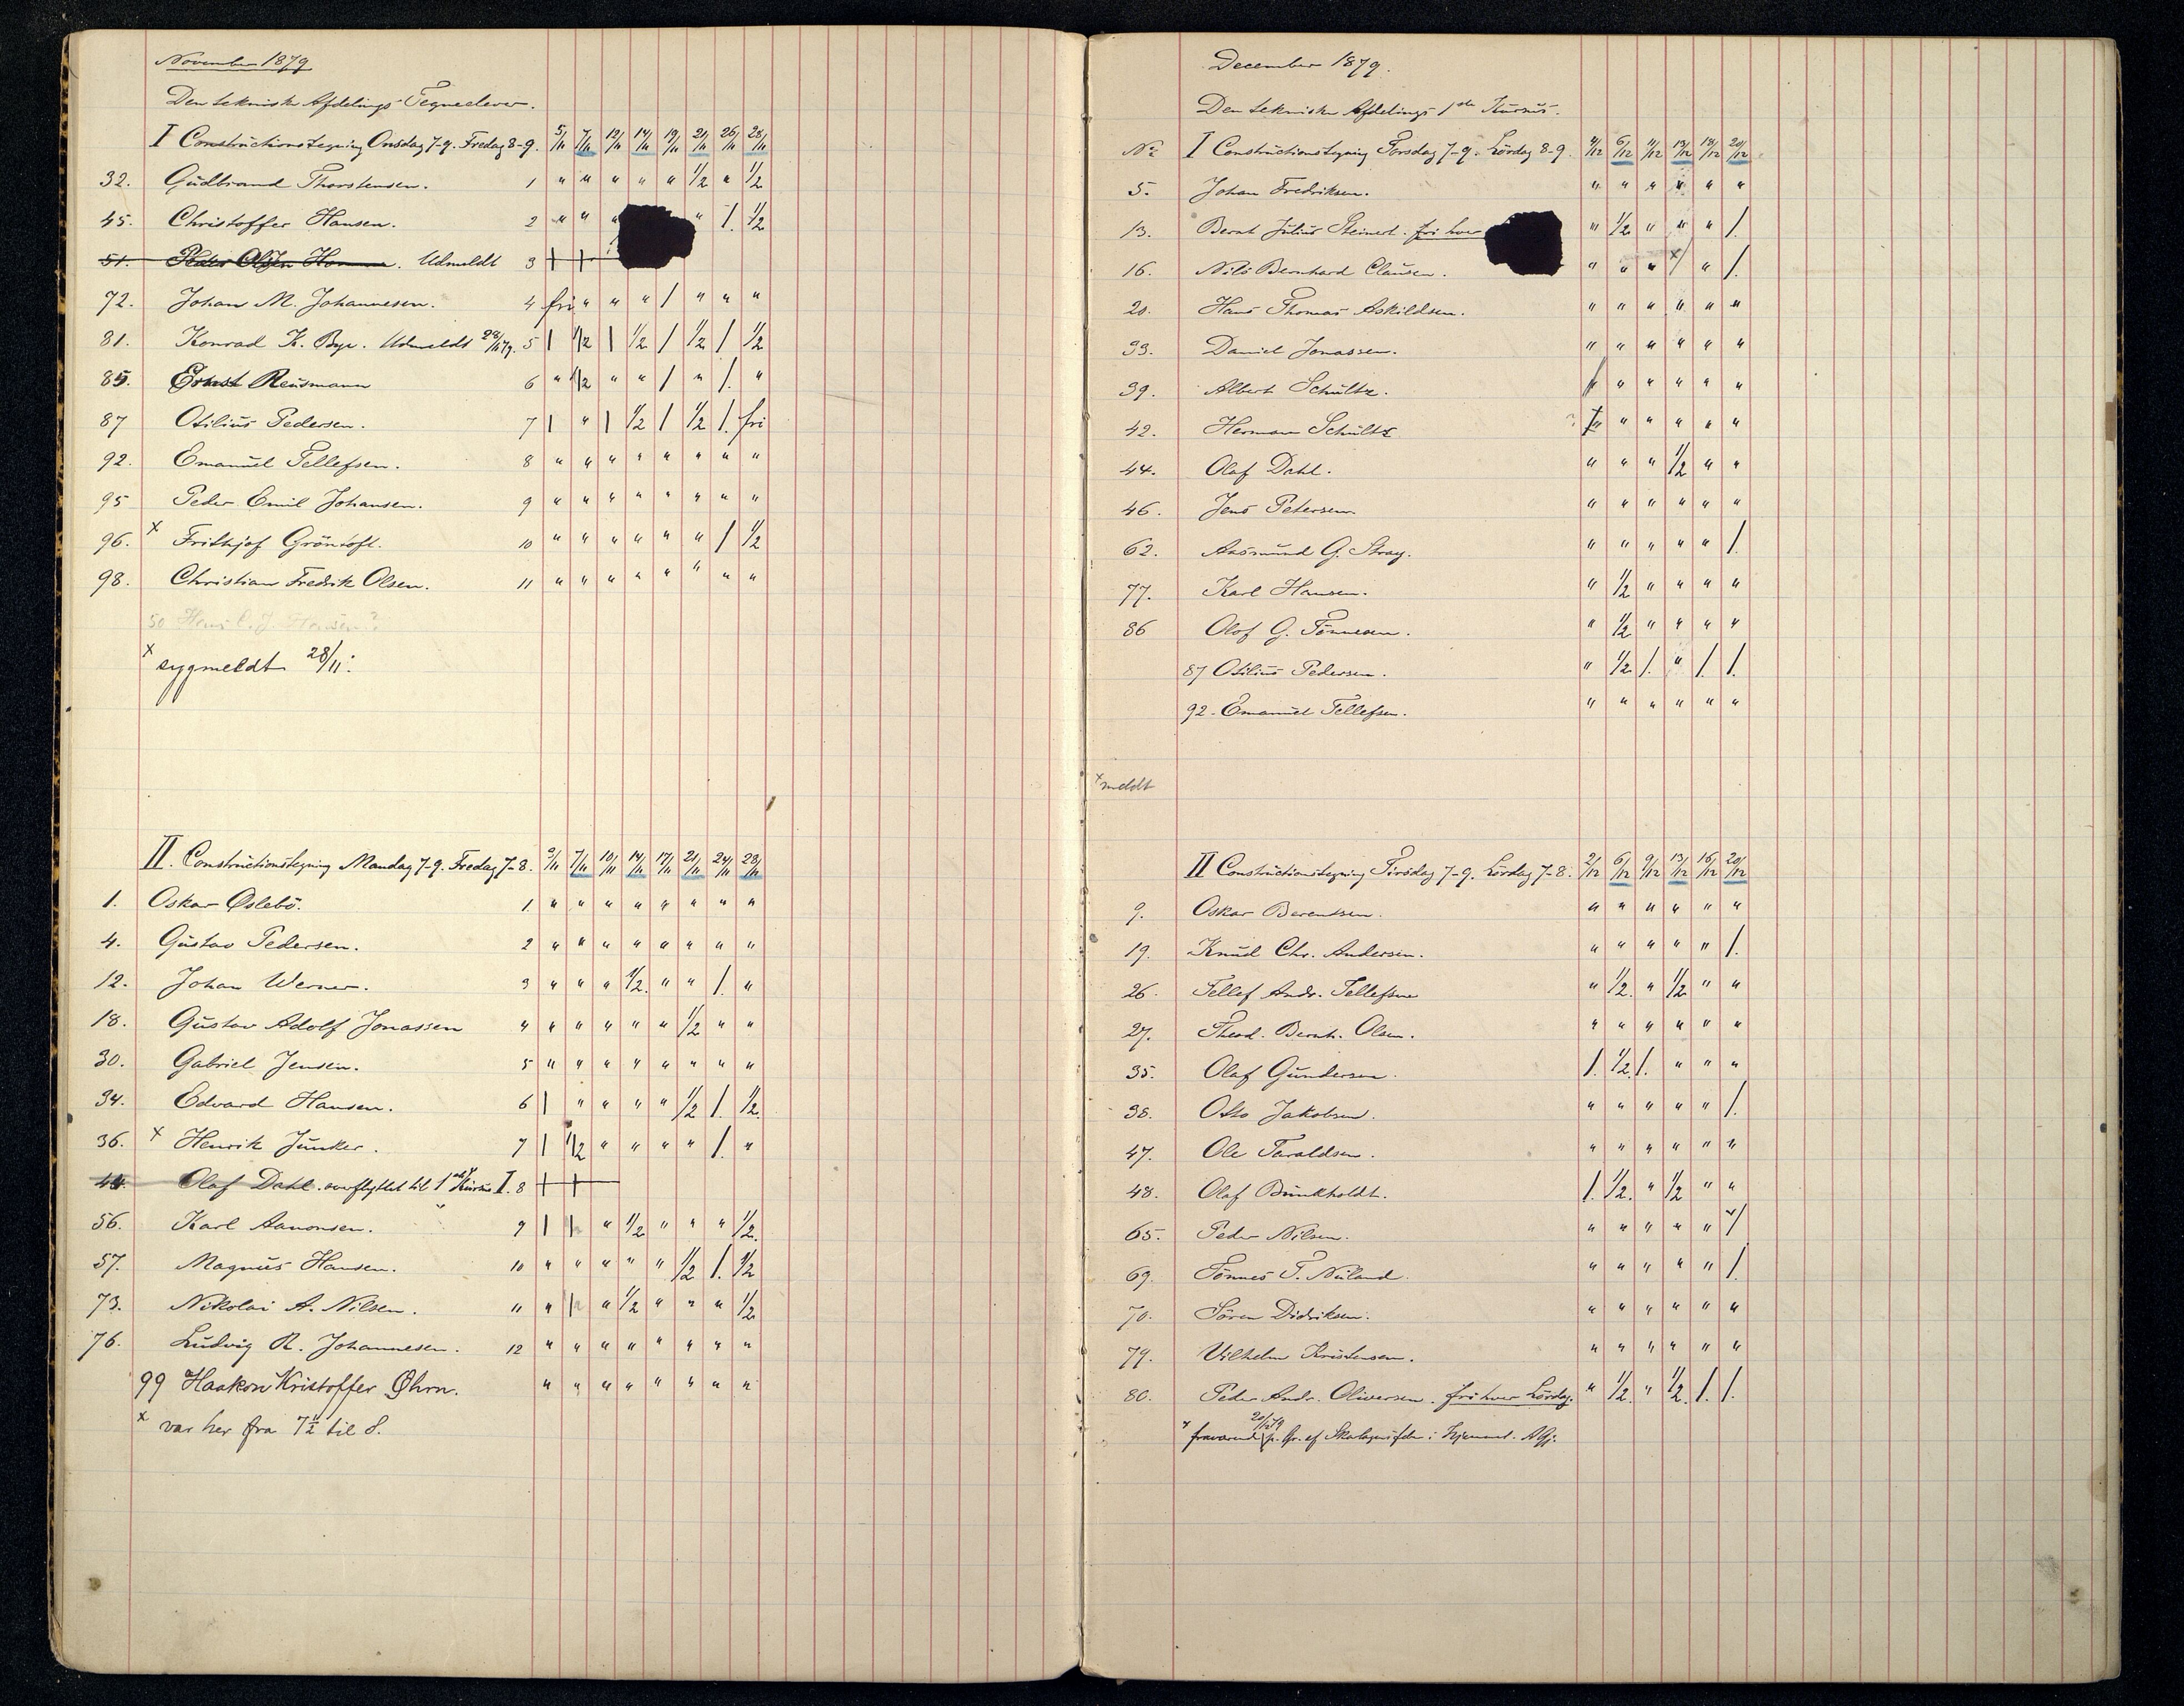 November 1879
Den tekniske Afdelings Tegneelever.
I Constructionstegning Onsdag 7-9. Fredag 8-9. 5/11 7/11 12/11 14/11 19/11 21/11 26/11 28/11
32. Gudbrand Thorstensen. 1 " " " " " 1/2 " 1/2
45. Christoffer Hansen. 2 " " " " /. 1/2
51. Peder Olsen. Udmeldt 3 | |
72. Johan M. Johannesen. 4 fri " " " / " " "
81. Konrad K. Bye. Udmeldt 28/11 79. 5 | 1/2 | 1/2 / 1/2 / 1/2
85. Ernst Reusmann 6 " 1/2 " " / " /. "
87 Otilius Pedersen. 7 | " | 1/2 / 1/2 /. fri
92. Emanuel Tellefsen. 8 " " " " " " " "
95 Peder Emil Johansen. 9 " " " " " " " "
96. x Frithjof Gröntoft. 10 " " " " " " / 1/2
98. Christian Fredrik Olsen. 11 " " " " " " " "
50 Hans C. J. Hansen?
x sygmeldt 28/11.
II. Constructionstegning Mandag 7-9. Fredag 7-8. 3/11 7/11 10/11 14/11 17/11 21/11 24/11 28/11
1. Oskar Øslebö. 1. " " " " " " " "
4. Gustav Pedersen. 2 " " " " " " " "
12. Johan Werner. 3 " " " 1/2. " " /. "
18. Gustav Adolf Jonassen " " " " " " 1/2 " "
30. Gabriel Jensen. 5 " " " " " " " "
34. Edvard Hansen. 6 | " " " " 1/2 /. 1/2.
36. x Henrik Junker. 7 | 1/2 " " " " /. "
44. Olaf Dahl. overflyttet til 1ste Kursus I. 8 | |
56. Karl Aanonsen. 9 | | " 1/2 " " " 1/2.
57. Magnus Hansen. 10 " " " " " 1/2 /. 1/2
73. Nikolai A. Nilsen. 11 " 1/2 " 1/2 " " " 1/2
76. Ludvig R. Johannesen. 12 " " " " " " " "
99 Haakon Kristoffer Øhrn. " " " " " " " "
x var her fra 7 1/2 til 8.
December 1879.
Den tekniske Afdelings 1ste Kursus.
No I Constructionstegning Torsdag 7-9. Lördag 8-9. 4/12 6/12 11/12 13/12 18/12 20/12
5. Johan Fredriksen. " " " " " "
13. Bernt Julius Steinert. fri hver " 1/2 " " " /.
16. Nils Bernhard Clausen. " " " x/ " /.
20. Hans Thomas Askildsen. " " " " " "
33. Daniel Jonassen. " " " " " "
39. Albert Schultz. / " " " " "
42. Herman Schultz ? " " " " " "
44. Olaf Dahl. " " " 1/2 " "
46. Jens Petersen. " " " " " "
62. Aasmund G. Stray. " " " " " /.
77. Karl Hansen. " 1/2 " " " "
86 Olof G. Tönnesen. " 1/2 " " " "
87 Otilius Pedersen. " 1/2 /. " /. /.
92. Emanuel Tellefsen. " " " " " "
x meldt
II Constructionstegning Tirsdag 7-9. Lördag 7-8. 2/12 6/12 9/12 13/12 16/12 20/12
9. Oskar Berentsen. " " " " " "
19. Knud Chr. Andersen. " " " " " /.
26. Tellef Andr. Tellefsen " 1/2. " 1/2 " "
27. Theod. Bernh. Olsen. " " " " " "
35. Olaf Gundersen. /. 1/2 /. " " "
38. Otto Jakobsen. " " " " " /.
47. Ole Taraldsen. " " " " " "
48. Olaf Bunkholdt. /. 1/2. " 1/2 " "
65. Peder Nilsen. " " " " " x/
69. Tönnes T. Neiland. " " " " " /.
70. Sören Didriksen. " " " " " "
79. Vilhelm Kristensen. " " " " " "
80. Peder Andr. Oliversen. fri hver Lördag. " 1/2. " 1/2. /. /.
x fraværende 20/12 79 p. Gr. af i Hjemmet.